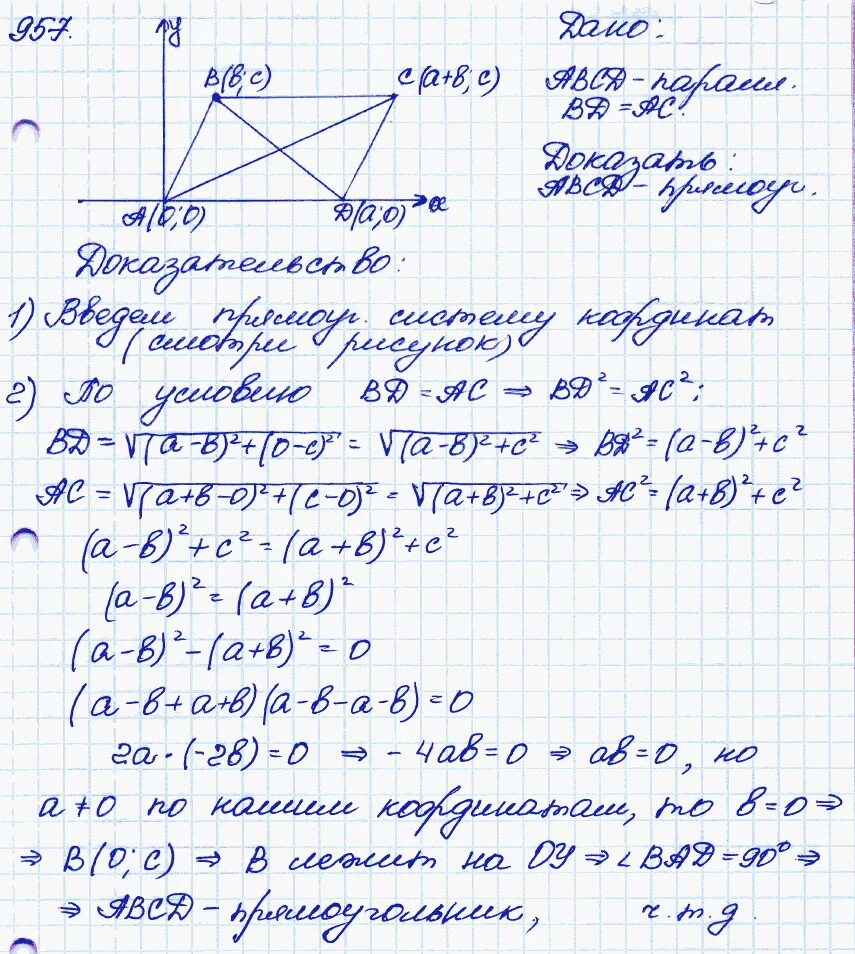 957.
у
B(b;c)
C(a+b;c)
A(0;0)
D(a;0)
x
Дано:
ABCD - паралл.
BD = AC.
Доказать:
ABCD - прямоуг.
Доказательство:
1) Введем прямоуг. систему координат
(смотри рисунок)
2) По условию BD = AC ⇒ BD² = AC²;
BD = √((a-b)²+(0-c)²) = √((a-b)²+c²) ⇒ BD² = (a-b)²+c²
AC = √((a+b-0)²+(c-0)²) = √((a+b)²+c²) ⇒ AC² = (a+b)²+c²
(a-b)²+c² = (a+b)²+c²
(a-b)² = (a+b)²
(a-b)² - (a+b)² = 0
(a-b+a+b)(a-b-a-b) = 0
2a·(-2b) = 0 ⇒ -4ab = 0 ⇒ ab = 0, но
a ≠ 0 по нашим координатам, то b = 0 ⇒
⇒ B(0;c) ⇒ B лежит на OY ⇒ ∠BAD = 90° ⇒
⇒ ABCD - прямоугольник, ч.т.д.